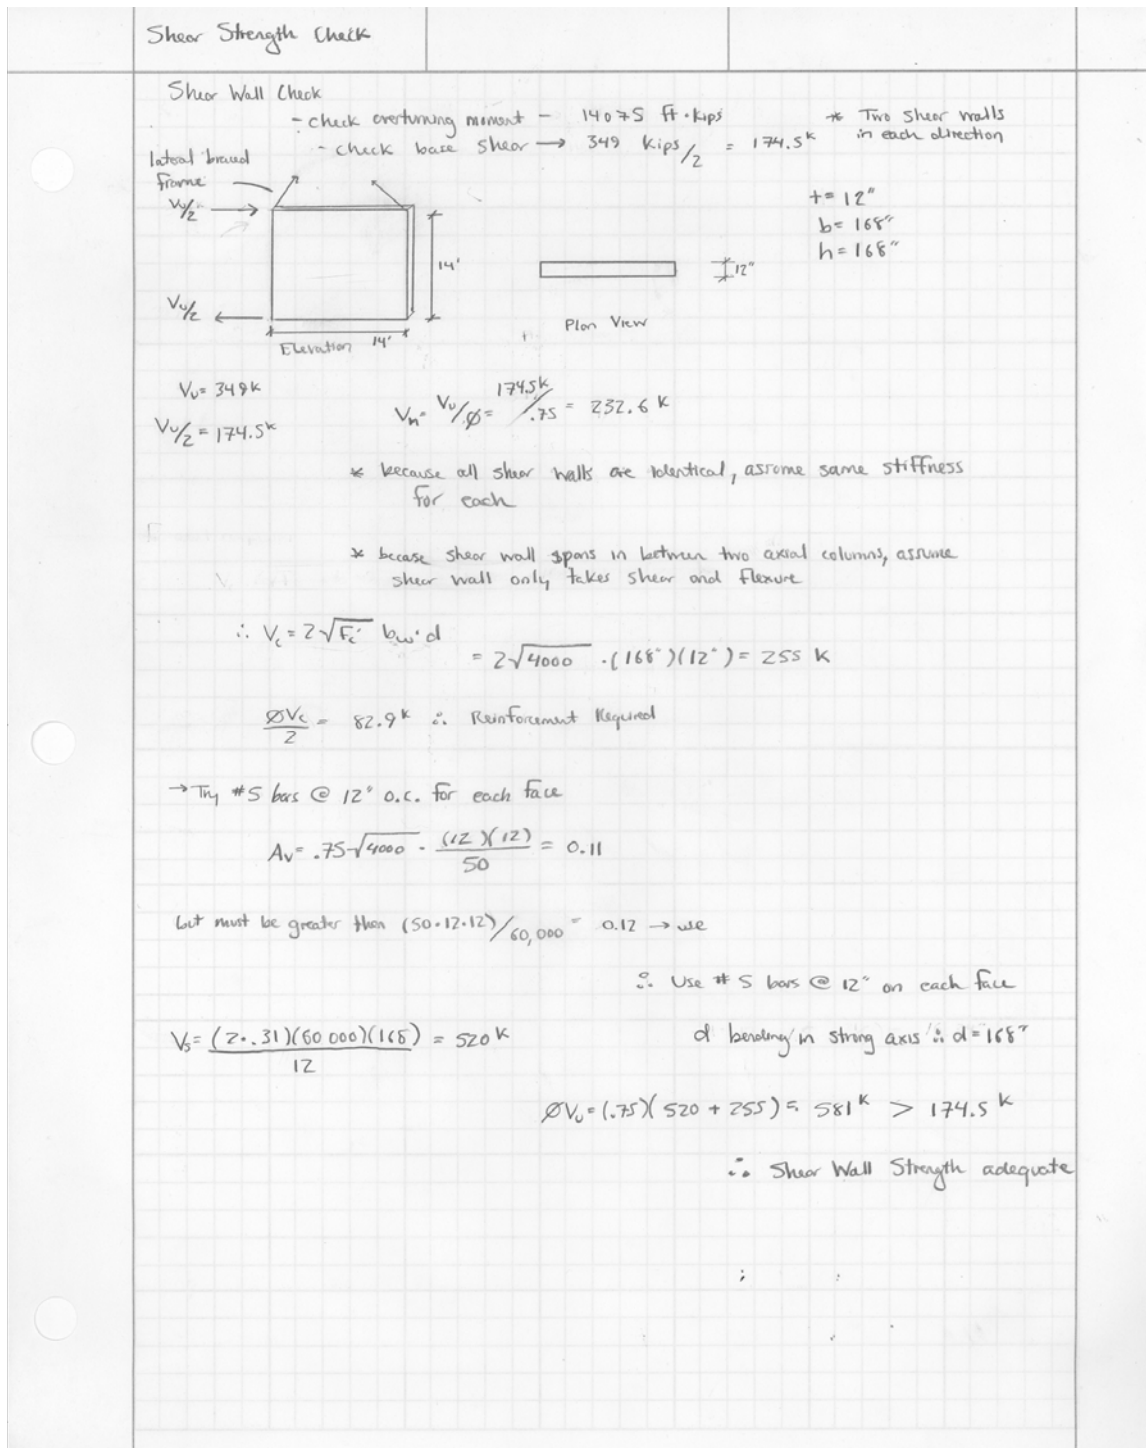 Shear Strength Check
Shear Wall Check
- check overturning moment - 14075 ft·kips
* Two shear walls in each direction
- check base shear → 349 kips/2 = 174.5k
lateral braced
frame
Vu/2
t= 12"
b= 168"
h= 168"
14'
12"
Vu/2
Plan View
Elevation 14'
Vu= 349k
Vn= Vu/Ø= 174.5k/.75 = 232.6 k
Vu/2 = 174.5k
* because all shear walls are identical, assume same stiffness
for each
* becase shear wall spans in between two axial columns, assume
shear wall only takes shear and flexure
∴ Vc = 2√Fc' bw·d
= 2√4000 · (168")(12") = 255 k
ØVc/2 = 82.9k ∴ Reinforcement Required
→ Try #5 bars @ 12" o.c. for each face
Av= .75√4000 · (12)(12)/50 = 0.11
but must be greater then (50·12·12)/60,000 = 0.12 → use
∴ Use #5 bars @ 12" on each face
Vs= (2·.31)(60 000)(168)/12 = 520 k
d bending in strong axis ∴ d=168"
ØVu= (.75)(520 + 255) = 581 k > 174.5 k
∴ Shear Wall Strength adequate